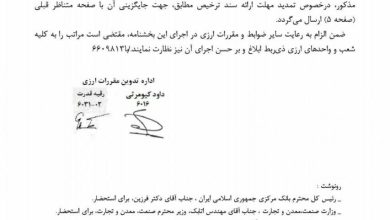 مذکور، درخصوص تمدید مهلت ارائه سند ترخیص مطابق، جهت جایگزینی آن با صفحه متناظر قبلی
(صفحه ۵) ارسال می‌گردد.
ضمن الزام به رعایت سایر ضوابط و مقررات ارزی در اجرای این بخشنامه، مقتضی است مراتب را به کلیه
شعب و واحدهای ارزی ذی‌ربط ابلاغ و بر حسن اجرای آن نیز نظارت نمایند./۶۶۰۹۸۱۳
اداره تدوین مقررات ارزی
داود کیومرثی
رقیه قدرت
۶۰۱۶
۶۰۳۱-۰۲
رونوشت :
ـ رئیس کل محترم بانک مرکزی جمهوری اسلامی ایران ، جناب آقای دکتر فرزین، برای استحضار.
ـ وزارت صنعت،معدن و تجارت ، جناب آقای مهندس اتابک، وزیر محترم صنعت، معدن و تجارت، برای استحضار.